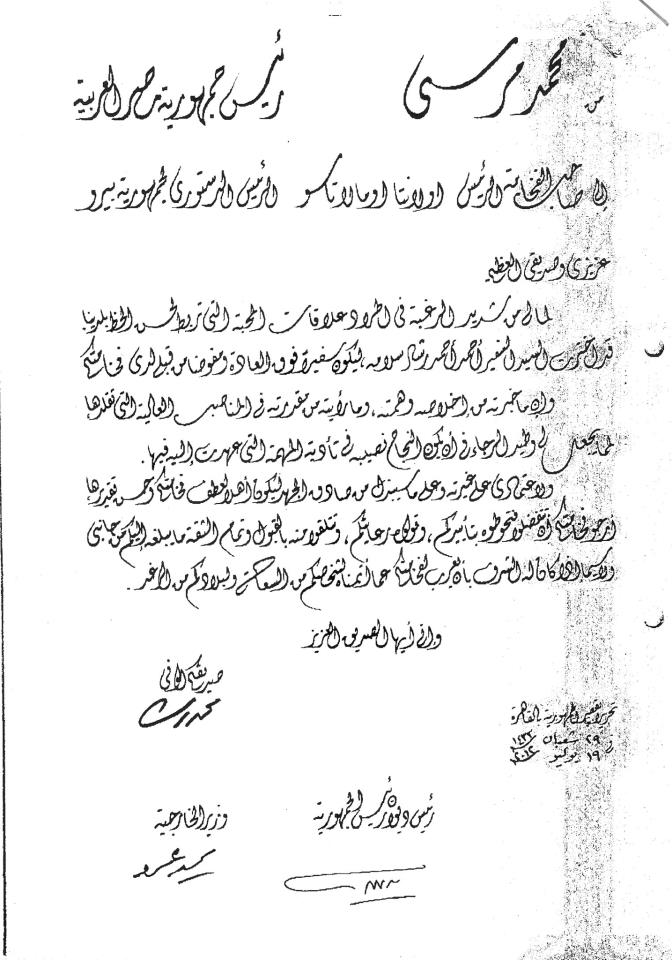 من محمد مرسى رئيس جمهورية مصر العربية
إلى صاحب الفخامة الرئيس اولانتا اومالا تاسو الرئيس الدستورى لجمهورية بيرو
عزيزى وصديقى العظيم
لما لى من شديد الرغبة فى اطراد علاقات المحبة التى تربط لحسن الحظ بلدينا
قد اخترت السيد السفير أحمد أحمد رشاد سلامه ليكون سفيرا فوق العادة ومفوضا من قبلى لدى فخامتكم
وإن ما خبرته من إخلاصه وهمته، وما رأيته من مقدرته فى المناصب العالية التى تقلدها
لما يجعل لى وطيد الرجاء فى أن يكون النجاح نصيبه فى تأدية المهمة التى عهدت إليه فيها.
ولاعتمادى على غيرته وعلى ما سيبذل من صادق الجهد ليكون أهلا لعطف فخامتكم وحسن تقديرها
أرجو فخامتكم أن تتفضلوا فتحوطوه بتأييدكم، وتولوه رعايتكم، وتتلقوا منه بالقبول وتمام الثقة ما يبلغه إليكم من جانبى
ولا سيما إذا كان له الشرف بأن يعرب لفخامتكم عما أتمناه لشخصكم من السعادة ولبلادكم من الرغد.
وانى أيها الصديق العزيز
صديقكم الوفى
تحريرا بقصر الجمهورية بالقاهرة
فى ٢٩ شعبان ١٤٣٣
١٩ يوليو ٢٠١٢
رئيس ديوان رئيس الجمهورية وزير الخارجية